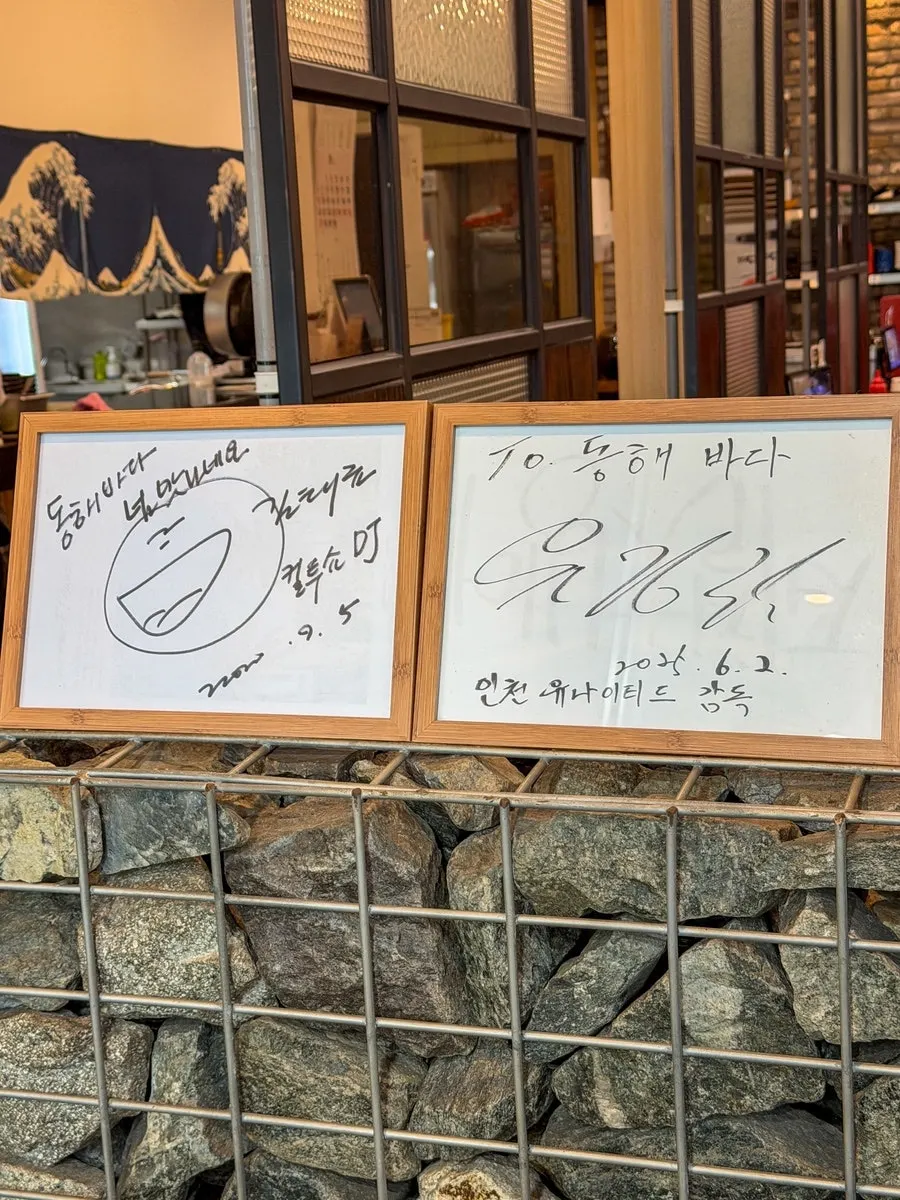 동해바다
넘 맛나네요
김태균
컬투쇼 DJ
2020 .9. 5
To. 동해 바다
2025. 6. 2.
인천 유나이티드 감독